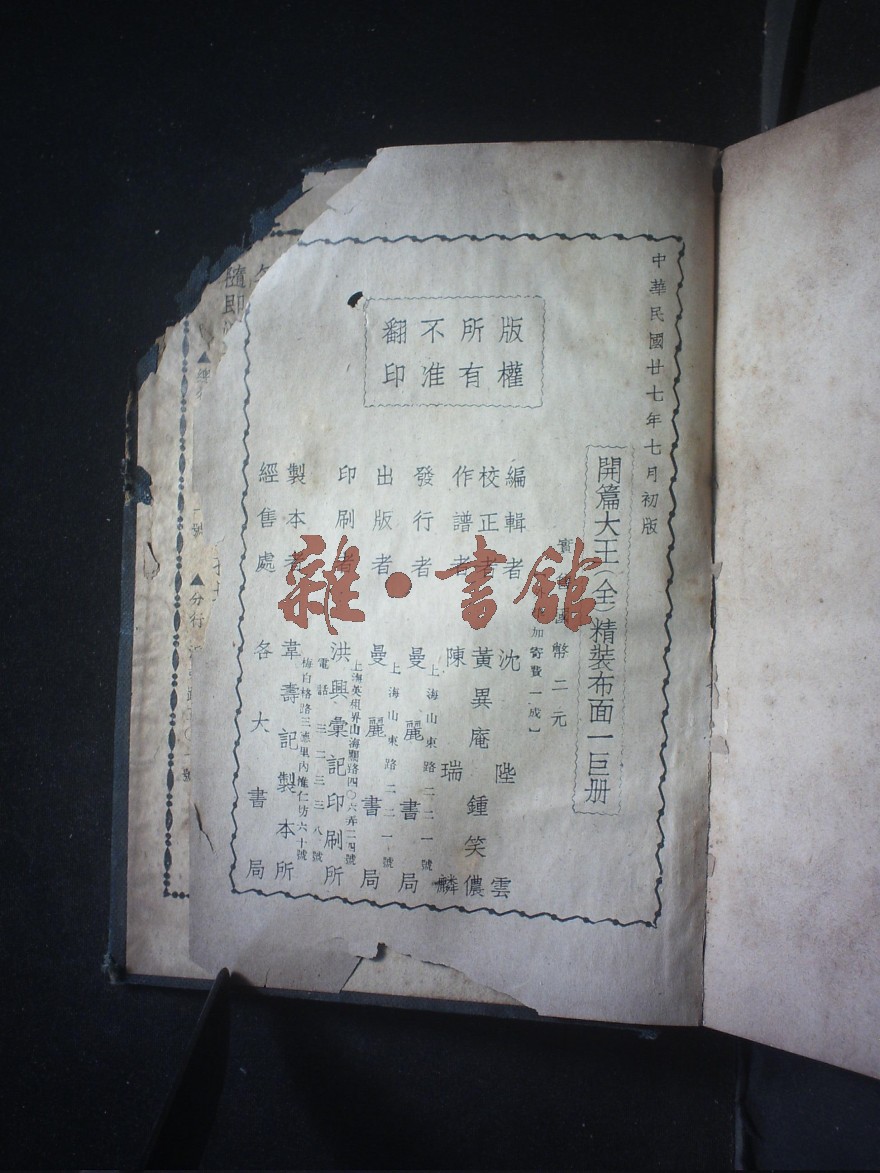 中華民國廿七年七月初版
開篇大王（全）精裝布面一巨册
幣二元
加寄費一成】
版權
所有
不准
翻印
編輯者 沈陛雲
校正者 黃異庵 鍾笑儂
作譜者 陳瑞麟
發行者 曼麗書局
上海山東路二二一號
出版者 曼麗書局
上海山東路二二一號
印刷者 洪興彙記印刷所
上海英租界山海關路四〇六弄二四號
電話三二三三八號
製本者 韋壽記製本所
梅白格路三德里內惟仁坊六十號
經售處 各大書局
雜·書館
隨即
▲分行